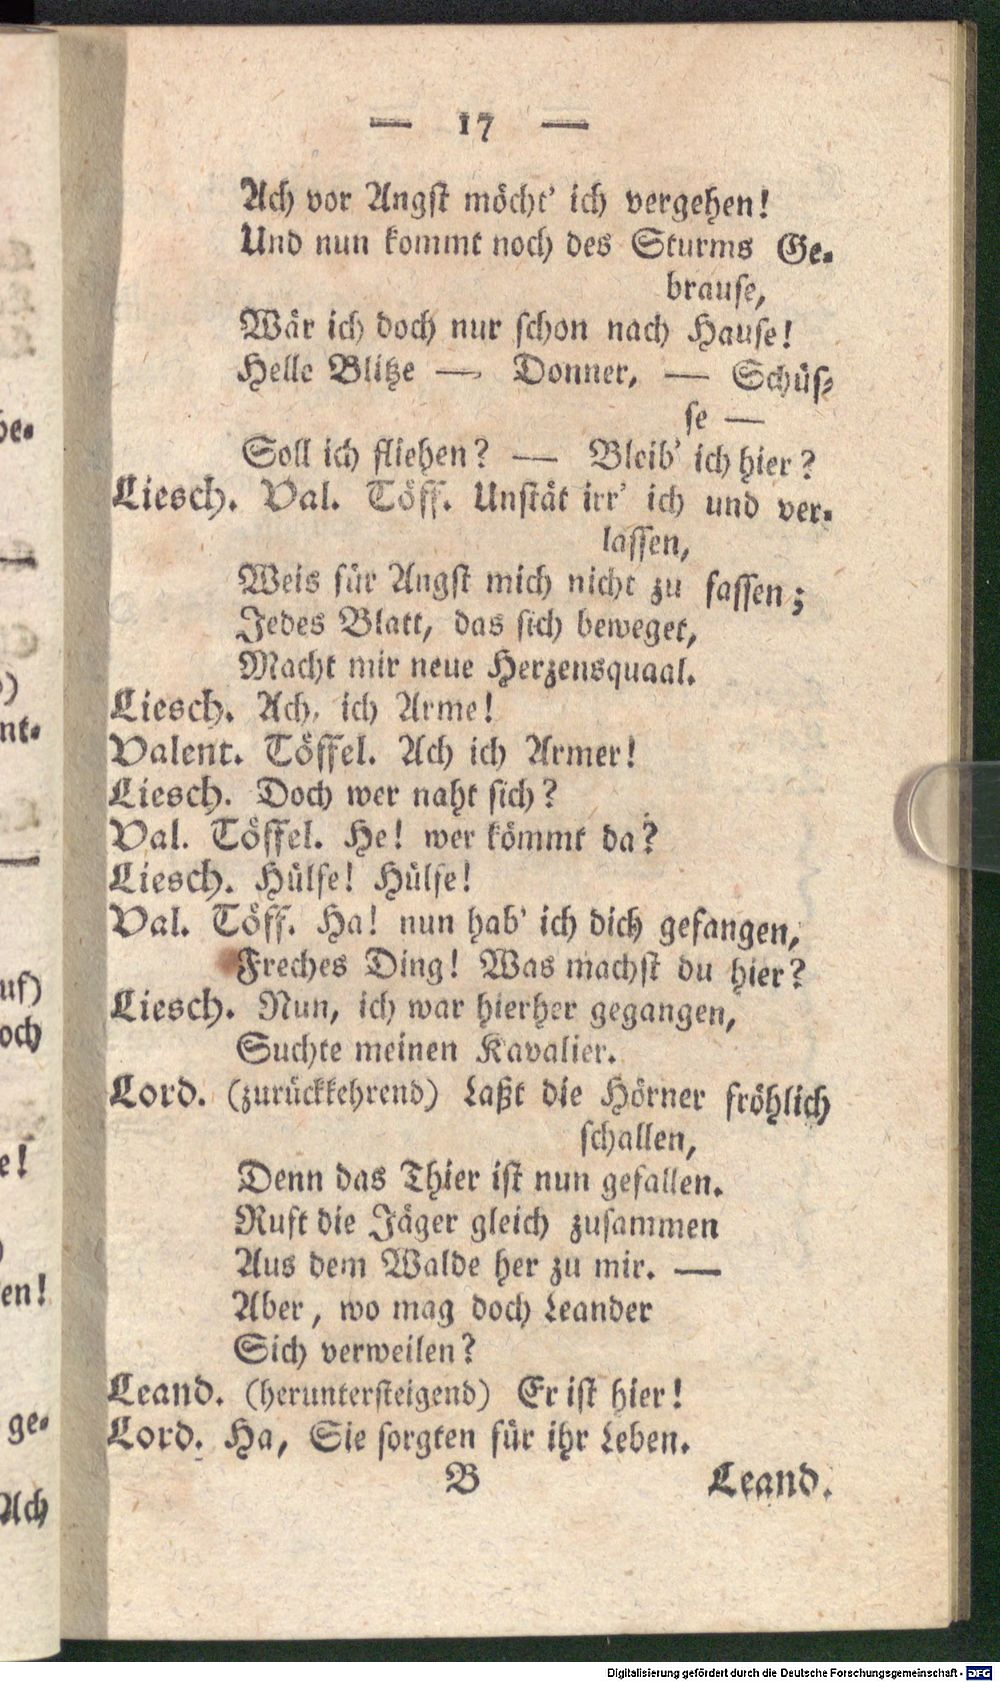 — 17 —
Ach vor Angst möcht' ich vergehen!
Und nun kommt noch des Sturms Ge-
brause,
Wär ich doch nur schon nach Hause!
Helle Blitze — Donner, — Schüs-
se —
Soll ich fliehen? — Bleib' ich hier?
Liesch. Val. Töff. Unstät irr' ich und ver-
lassen,
Weis für Angst mich nicht zu fassen;
Jedes Blatt, das sich beweget,
Macht mir neue Herzensquaal.
Liesch. Ach, ich Arme!
Valent. Töffel. Ach ich Armer!
Liesch. Doch wer naht sich?
Val. Töffel. He! wer kömmt da?
Liesch. Hülfe! Hülfe!
Val. Töff. Ha! nun hab' ich dich gefangen,
Freches Ding! Was machst du hier?
Liesch. Nun, ich war hierher gegangen,
Suchte meinen Kavalier.
Lord. (zurückkehrend) Laßt die Hörner fröhlich
schallen,
Denn das Thier ist nun gefallen.
Ruft die Jäger gleich zusammen
Aus dem Walde her zu mir. —
Aber, wo mag doch Leander
Sich verweilen?
Leand. (heruntersteigend) Er ist hier!
Lord. Ha, Sie sorgten für ihr Leben.
B Leand.
be-
)
nt-
uf)
och
e!
)
en!
ge-
Ach
Digitalisierung gefördert durch die Deutsche Forschungsgemeinschaft - DFG